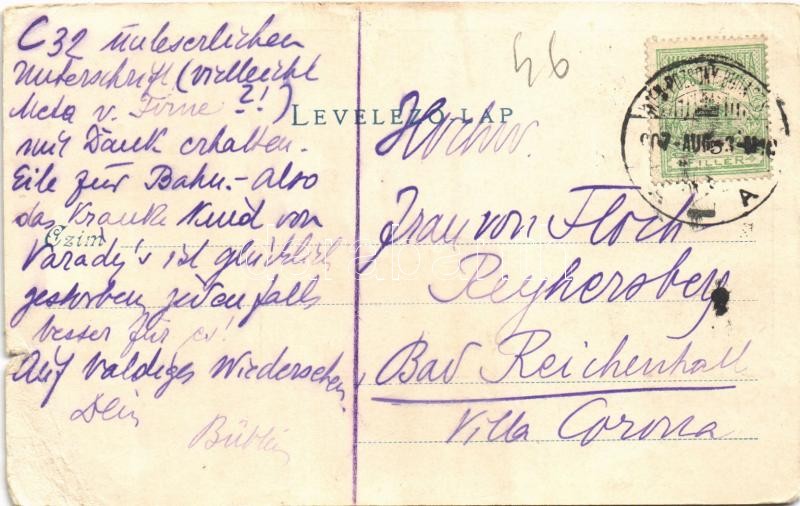 C 32 unleserlichen
Unterschrift (vielleicht
Meta v. Firne?!)
mit Dank erhalten.
Eile zur Bahn.- Also
das Kranke Kind von
Varady's ist glücklich
gestorben jedenfalls
besser für es!
Auf baldiges Wiedersehen
Dein
Bübli
46
LEVELEZŐ-LAP
Czim
Hochw.
Frau von Floch
Reyhersberg
Bad Reichenhall
Villa Corona
907 AUG
FILLÉR
A